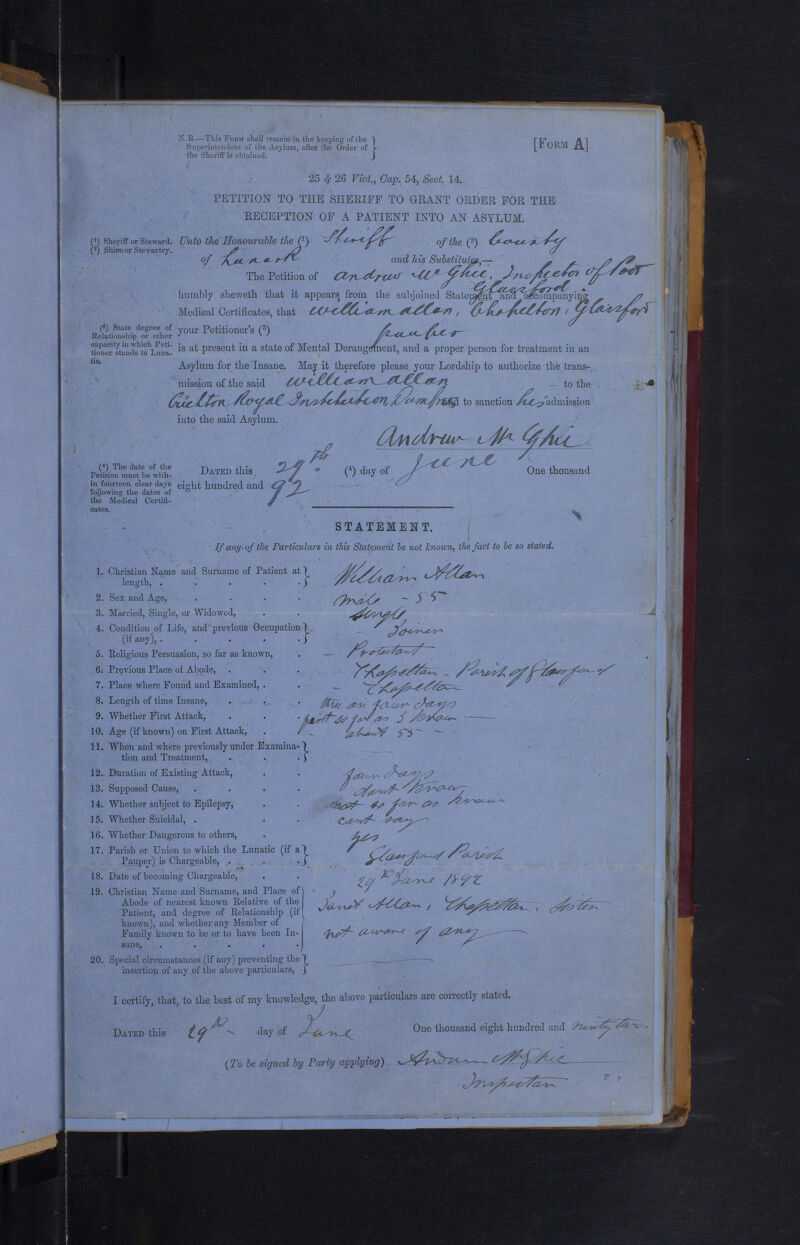 N.B.—This Form shall remain in the keeping of the
Superintendent of the Asylum, after the Order of
the Sheriff is obtained.
[Form A]
25 & 26 Vict., Cap. 54, Sect. 14.
PETITION TO THE SHERIFF TO GRANT ORDER FOR THE
RECEPTION OF A PATIENT INTO AN ASYLUM.
(1) Sheriff or Steward.
(2) Shire or Stewartry.
Unto the Honourable the (1) Sheriff of the (2) County
of Lanark and his Substitutes,—
The Petition of Andrew McGhie, Inspector of Poor
Glassford
humbly sheweth that it appears from the subjoined Statement and accompanying
Medical Certificates, that William Allan, Chapelton, Glassford
(3) State degree of
Relationship or other
capacity in which Peti-
tioner stands to Luna-
tic.
your Petitioner's (3) pauper
is at present in a state of Mental Derangement, and a proper person for treatment in an
Asylum for the Insane. May it therefore please your Lordship to authorize the trans-
mission of the said William Allan to the
Crichton Royal Institution Dumfries and to sanction his admission
into the said Asylum.
Andrew McGhie
(4) The date of the
Petition must be with-
in fourteen clear days
following the dates of
the Medical Certifi-
cates.
Dated this 29th (4) day of June One thousand
eight hundred and 92
STATEMENT.
If any of the Particulars in this Statement be not known, the fact to be so stated.
1. Christian Name and Surname of Patient at
length, . William Allan
2. Sex and Age, male - 55
3. Married, Single, or Widowed, Single
4. Condition of Life, and previous Occupation
(if any), . Joiner
5. Religious Persuasion, so far as known, — Protestant
6. Previous Place of Abode, . Chapelton - Parish of Glassford
7. Place where Found and Examined, . - Chapelton
8. Length of time Insane, three an four days
9. Whether First Attack, so far as I know —
10. Age (if known) on First Attack, - about 55 -
11. When and where previously under Examina-
tion and Treatment, —
12. Duration of Existing Attack, four days
13. Supposed Cause, dont know
14. Whether subject to Epilepsy, not so far as know
15. Whether Suicidal, . cant say
16. Whether Dangerous to others, yes
17. Parish or Union to which the Lunatic (if a
Pauper) is Chargeable, . Glassford Parish
18. Date of becoming Chargeable, 29th June 1892
19. Christian Name and Surname, and Place of
Abode of nearest known Relative of the
Patient, and degree of Relationship (if
known), and whether any Member of
Family known to be or to have been In-
sane, .
Janet Allan, Chapelton, Sister
not aware of any
20. Special circumstances (if any) preventing the
insertion of any of the above particulars, —
I certify, that, to the best of my knowledge, the above particulars are correctly stated.
Dated this 29th - day of June One thousand eight hundred and ninety two.
(To be signed by Party applying) Andrew McGhie
Inspector
P p